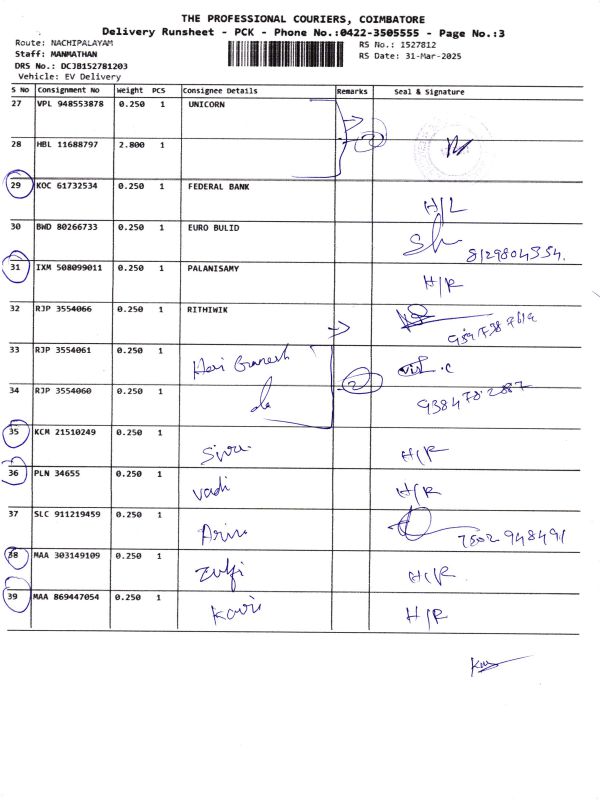 THE PROFESSIONAL COURIERS, COIMBATORE
Delivery Runsheet - PCK - Phone No.:0422-3505555 - Page No.:3
Route: NACHIPALAYAM RS No.: 1527812
Staff: MANMATHAN RS Date: 31-Mar-2025
DRS No.: DCJB152781203
Vehicle: EV Delivery
S No Consignment No Weight PCS Consignee Details Remarks Seal & Signature
27 VPL 948553878 0.250 1 UNICORN
28 HBL 11688797 2.800 1 2
29 KOC 61732534 0.250 1 FEDERAL BANK H/L
30 BWD 80266733 0.250 1 EURO BULID 8129804354.
31 IXM 508099011 0.250 1 PALANISAMY H/R
32 RJP 3554066 0.250 1 RITHIWIK
33 RJP 3554061 0.250 1 Hari Ganesh
34 RJP 3554060 0.250 1 do 2 9384702887
35 KCM 21510249 0.250 1 Siva H/R
36 PLN 34655 0.250 1 vadi H/R
37 SLC 911219459 0.250 1 7502948491
38 MAA 303149109 0.250 1 Zulfi H/R
39 MAA 869447054 0.250 1 Kavi H/R